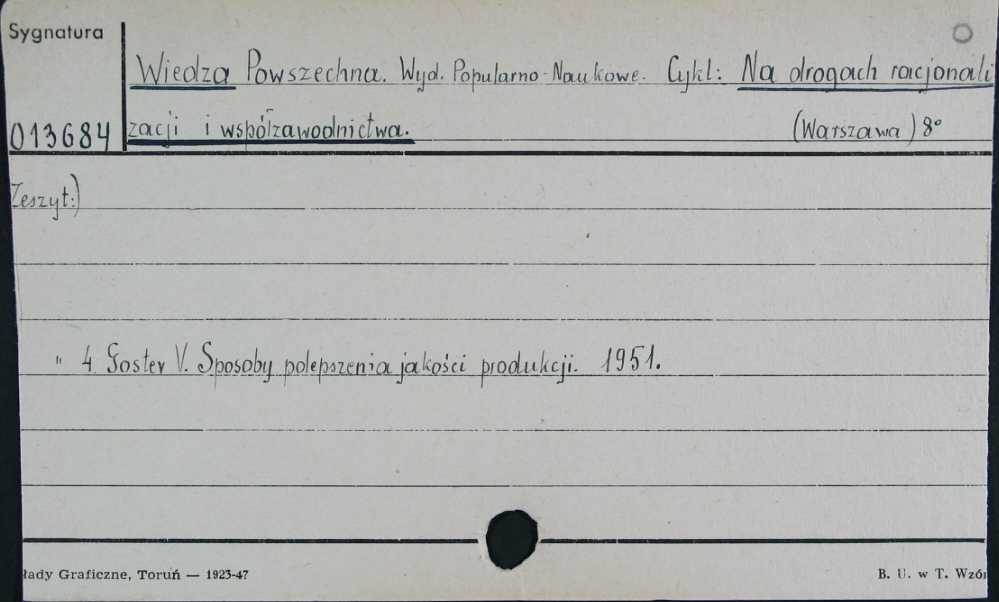 Sygnatura
Wiedza Powszechna. Wyd. Popularno-Naukowe. Cykl: Na drogach racjonali
013684 zacji i współzawodnictwa. (Warszawa) 8°
Zeszyt:)
" 4 Gostev V. Sposoby polepszenia jakości produkcji. 1951.
łady Graficzne, Toruń — 1923-47 B. U. w T. Wzór